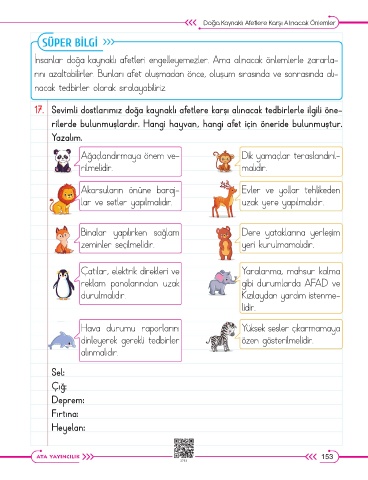 Doğa Kaynaklı Afetlere Karşı Alınacak Önlemler
SÜPER BİLGİ
İnsanlar doğa kaynaklı afetleri engelleyemezler. Ama alınacak önlemlerle zararla-
rını azaltabilirler. Bunları afet oluşmadan önce, oluşum sırasında ve sonrasında alı-
nacak tedbirler olarak sıralayabiliriz.
17. Sevimli dostlarımız doğa kaynaklı afetlere karşı alınacak tedbirlerle ilgili öne-
rilerde bulunmuşlardır. Hangi hayvan, hangi afet için öneride bulunmuştur.
Yazalım.
Ağaçlandırmaya önem ve-
rilmelidir.
Dik yamaçlar teraslandırıl-
malıdır.
Akarsuların önüne baraj-
lar ve setler yapılmalıdır.
Evler ve yollar tehlikeden
uzak yere yapılmalıdır.
Binalar yapılırken sağlam
zeminler seçilmelidir.
Dere yataklarına yerleşim
yeri kurulmamalıdır.
Çatılar, elektrik direkleri ve
reklam panolarından uzak
durulmalıdır.
Yaralanma, mahsur kalma
gibi durumlarda AFAD ve
Kızılaydan yardım istenme-
lidir.
Hava durumu raporlarını
dinleyerek gerekli tedbirler
alınmalıdır.
Yüksek sesler çıkarmamaya
özen gösterilmelidir.
Sel:
Çığ:
Deprem:
Fırtına:
Heyelan:
ATA YAYINCILIK
153